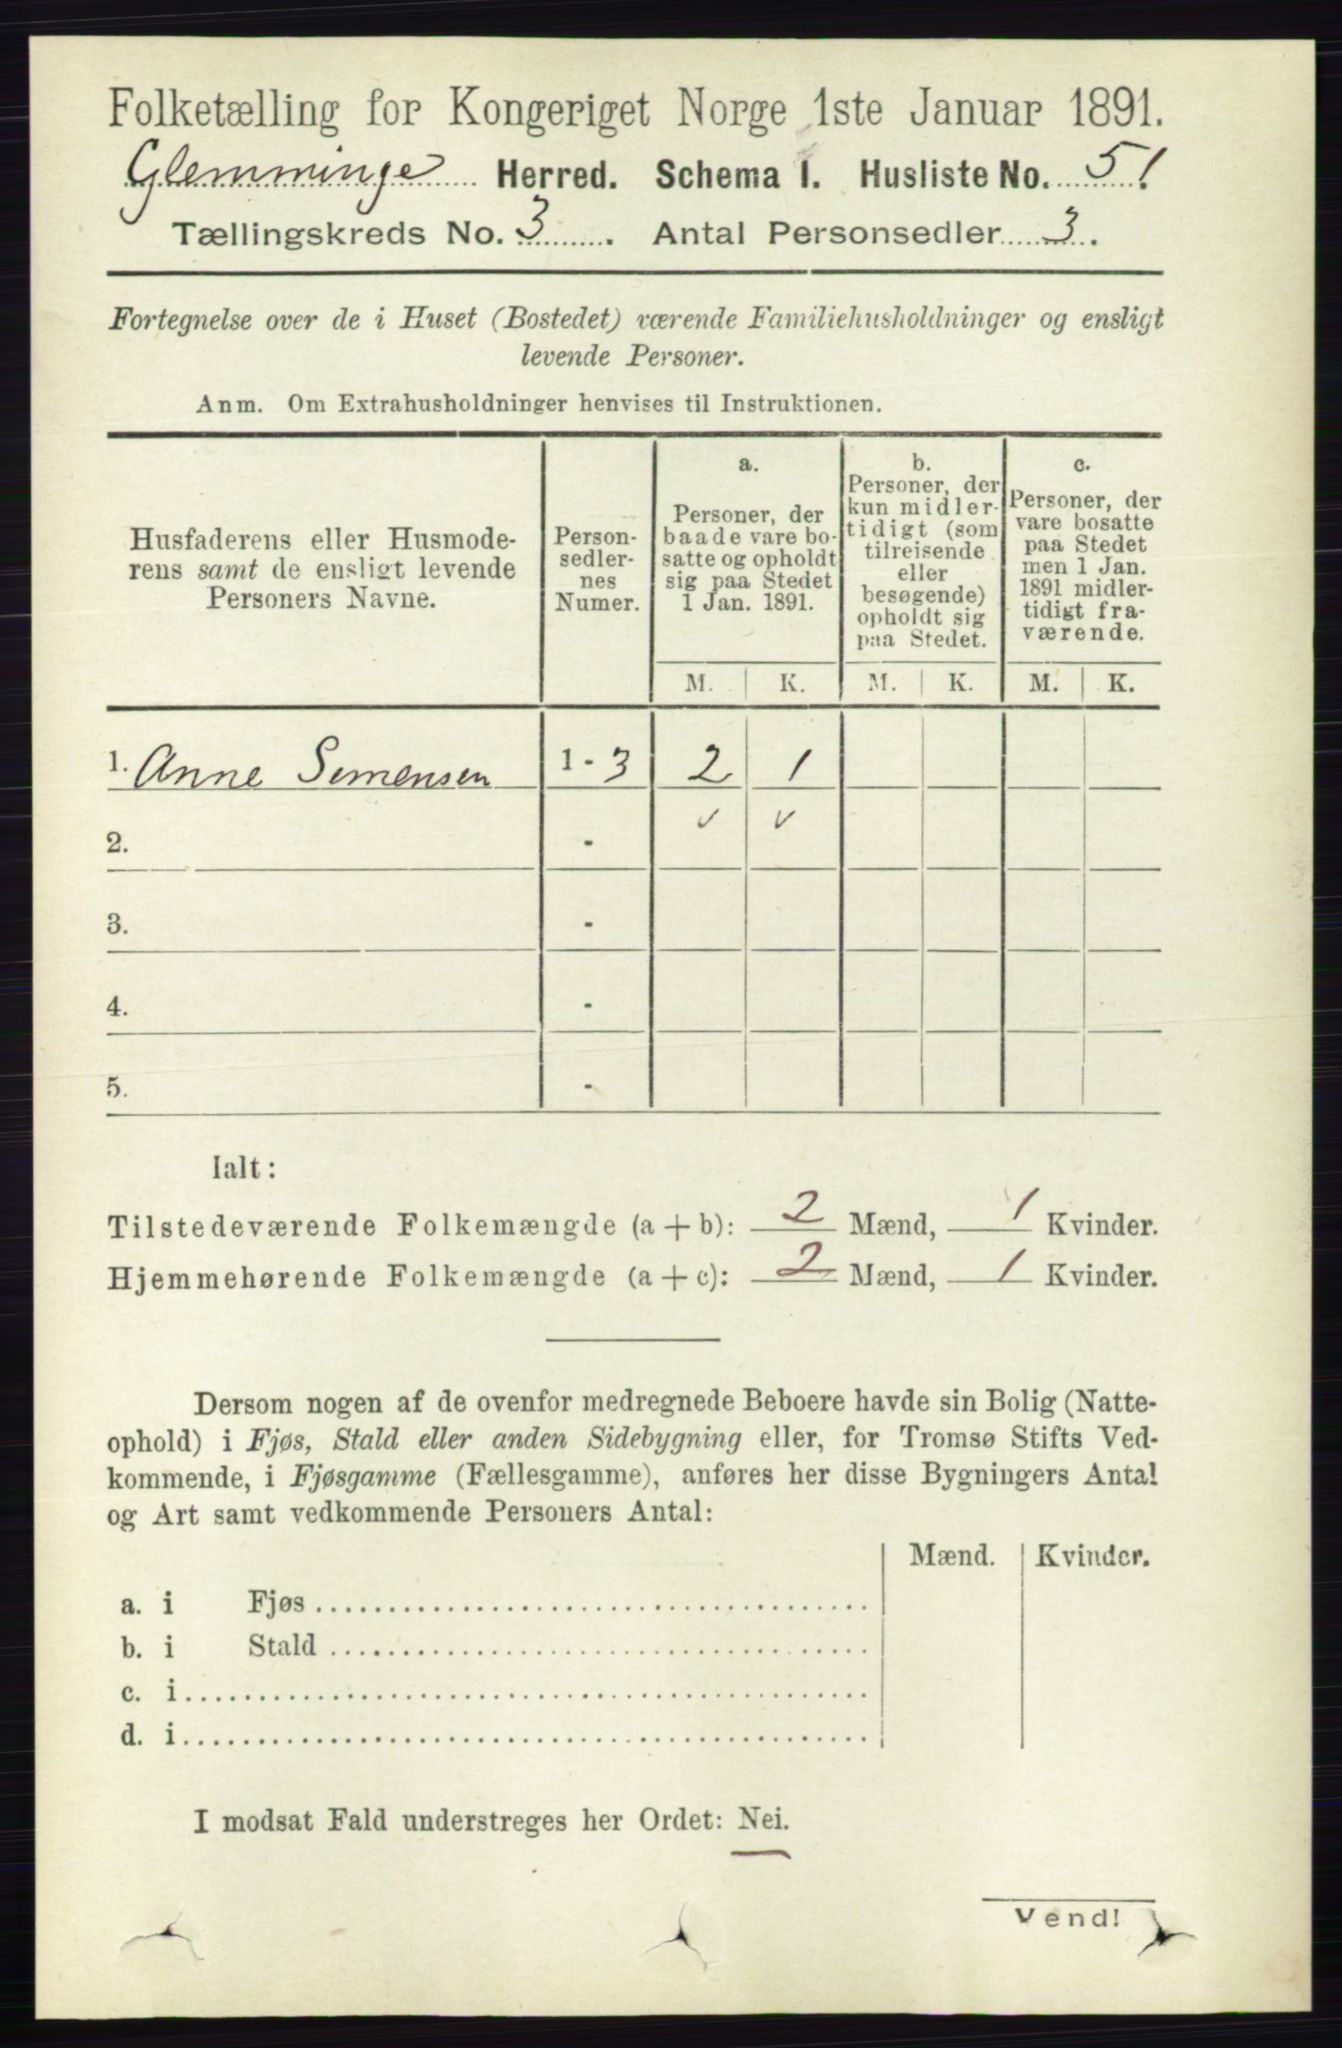 Folketælling for Kongeriget Norge 1ste Januar 1891.
Glemminge Herred. Schema I. Husliste No. 51
Tællingskreds No. 3. Antal Personsedler 3.
Fortegnelse over de i Huset (Bostedet) værende Familiehusholdninger og ensligt
levende Personer.
Anm. Om Extrahusholdninger henvises til Instruktionen.
Husfaderens eller Husmode-
rens samt de ensligt levende
Personers Navne.
Person-
sedler-
nes
Numer.
a.
Personer, der
baade vare bo-
satte og opholdt
sig paa Stedet
1 Jan. 1891.
b.
Personer, der
kun midler-
tidigt (som
tilreisende
eller
besøgende)
opholdt sig
paa Stedet.
c.
Personer, der
vare bosatte
paa Stedet
men 1 Jan.
1891 midler-
tidigt fra-
værende.
M. K. M. K. M. K.
1. Anne Simensen 1-3 2 1
2. - v v
3. -
4. -
5. -
Ialt:
Tilstedeværende Folkemængde (a + b): 2 Mænd, 1 Kvinder.
Hjemmehørende Folkemængde (a + c): 2 Mænd, 1 Kvinder.
Dersom nogen af de ovenfor medregnede Beboere havde sin Bolig (Natte-
ophold) i Fjøs, Stald eller anden Sidebygning eller, for Tromsø Stifts Ved-
kommende, i Fjøsgamme (Fællesgamme), anføres her disse Bygningers Antal
og Art samt vedkommende Personers Antal:
Mænd. Kvinder.
a. i Fjøs
b. i Stald
c. i
d. i
I modsat Fald understreges her Ordet: Nei.
Vend!